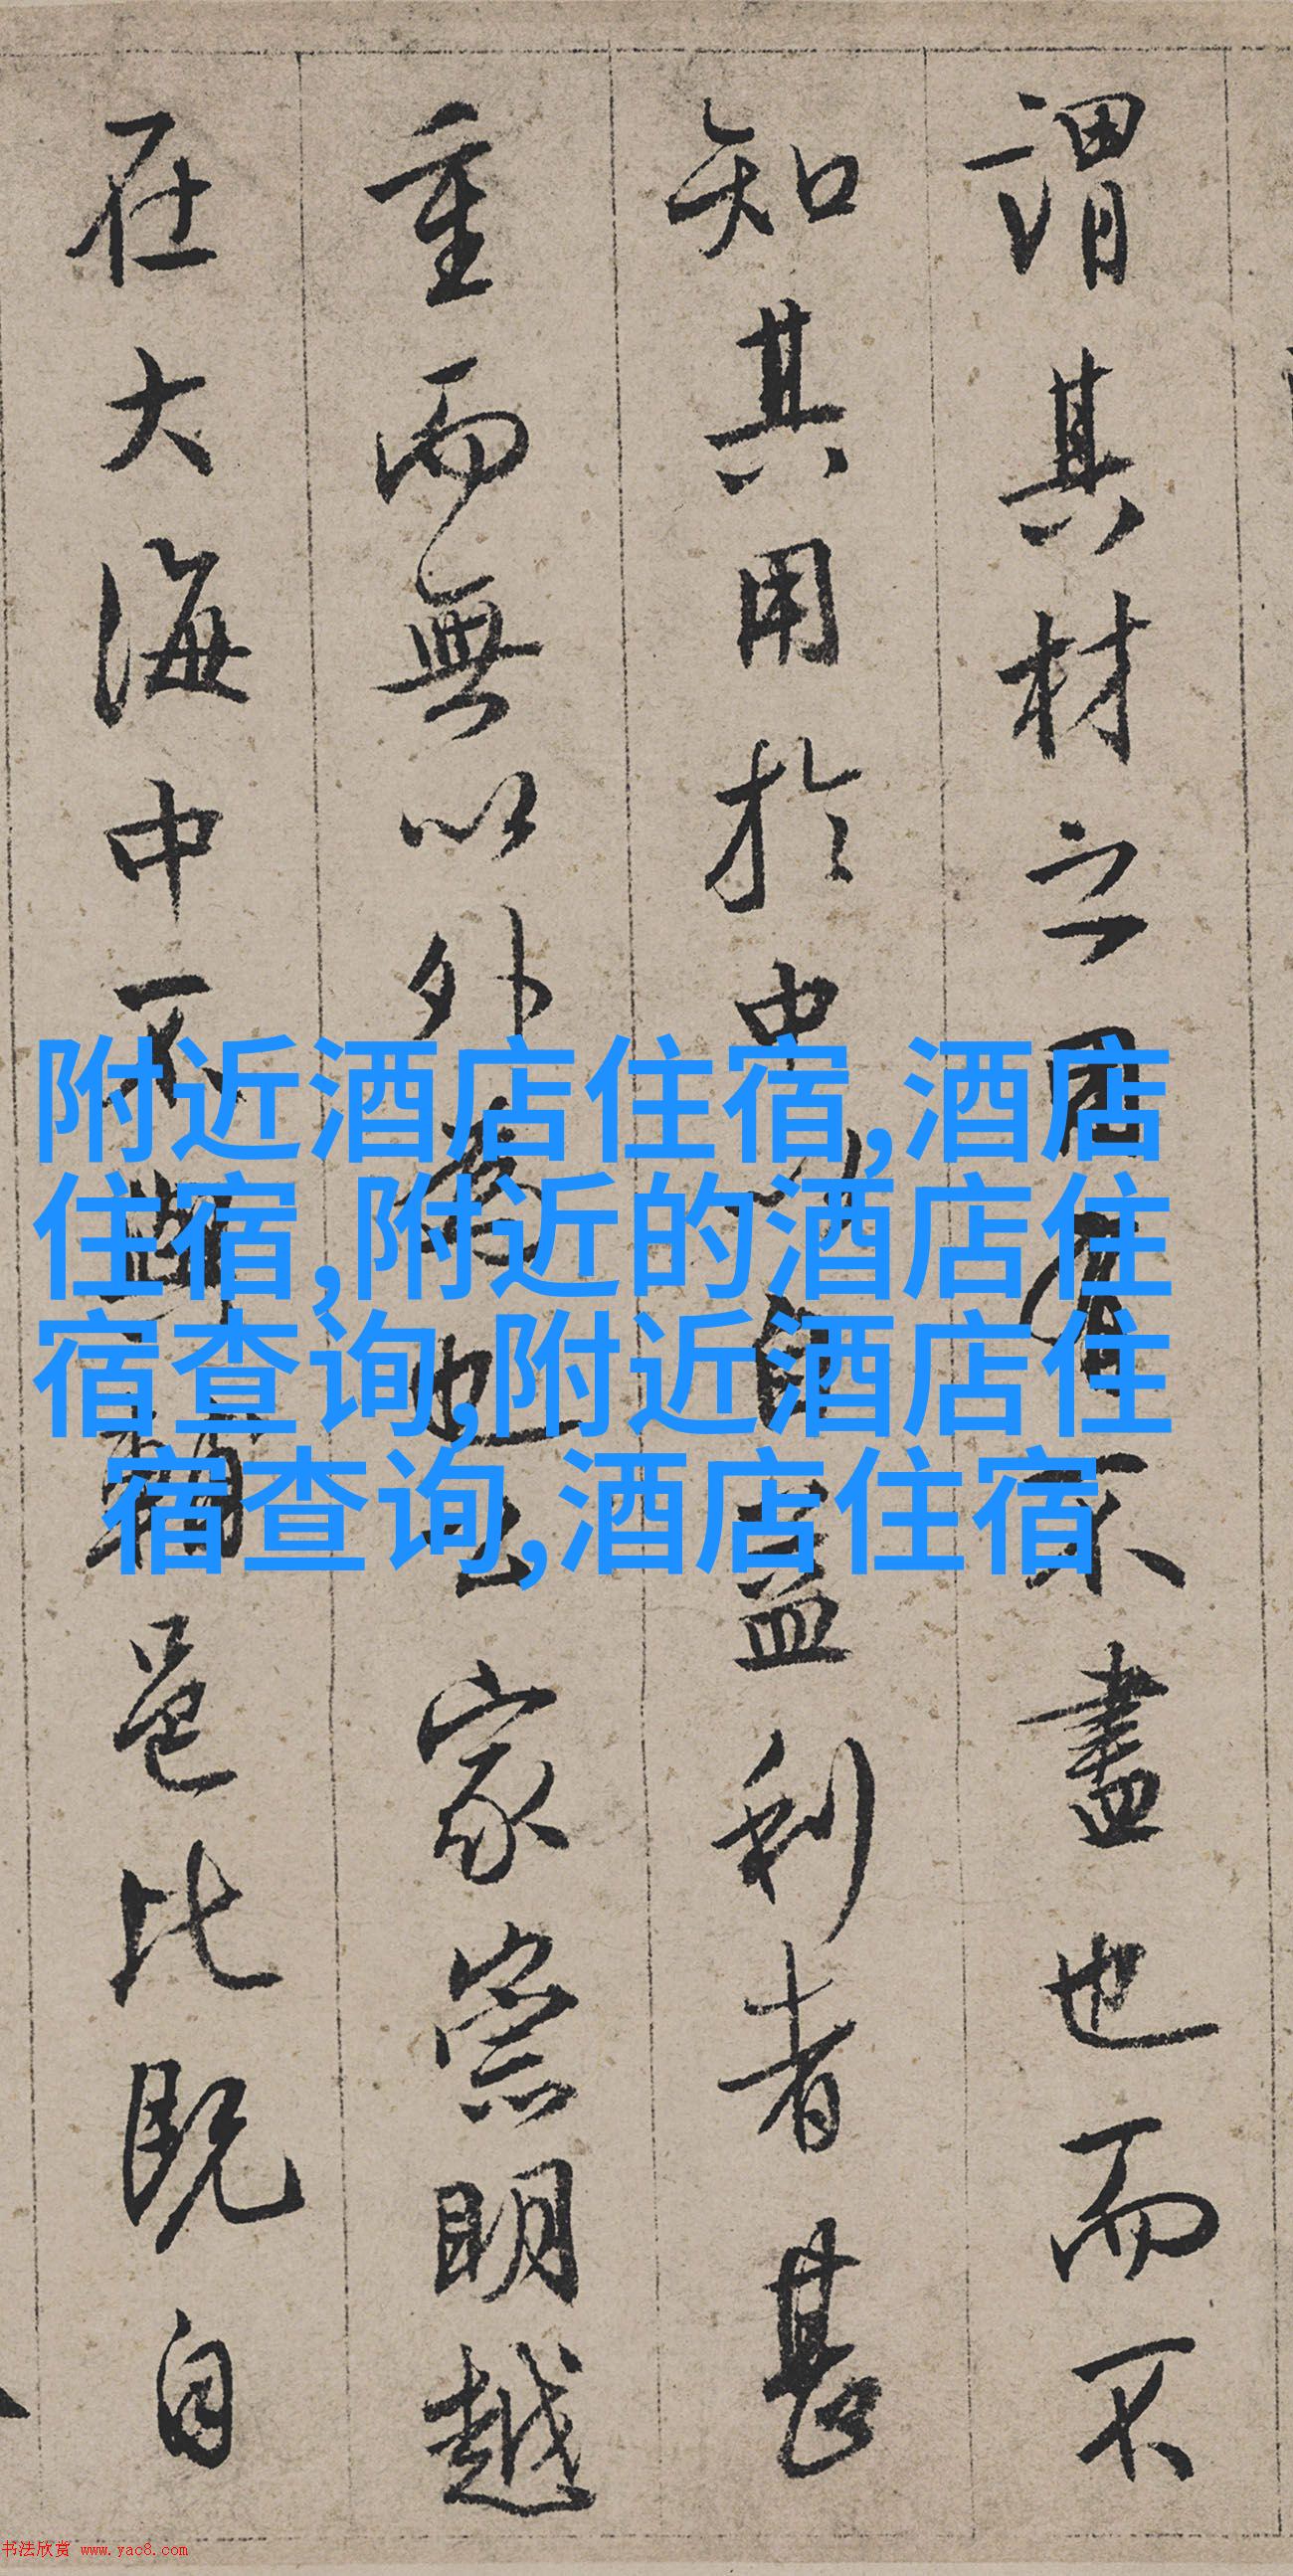 謂其材之用有不盡也而不
知其用於中以自益利者甚
重而無以外為也公家崇明越
在大海中不與鄰邑比既自
附近酒店住宿,酒店
住宿,附近的酒店住
宿查询,附近酒店住
宿查询,酒店住宿
书法欣赏 www.yac8.com